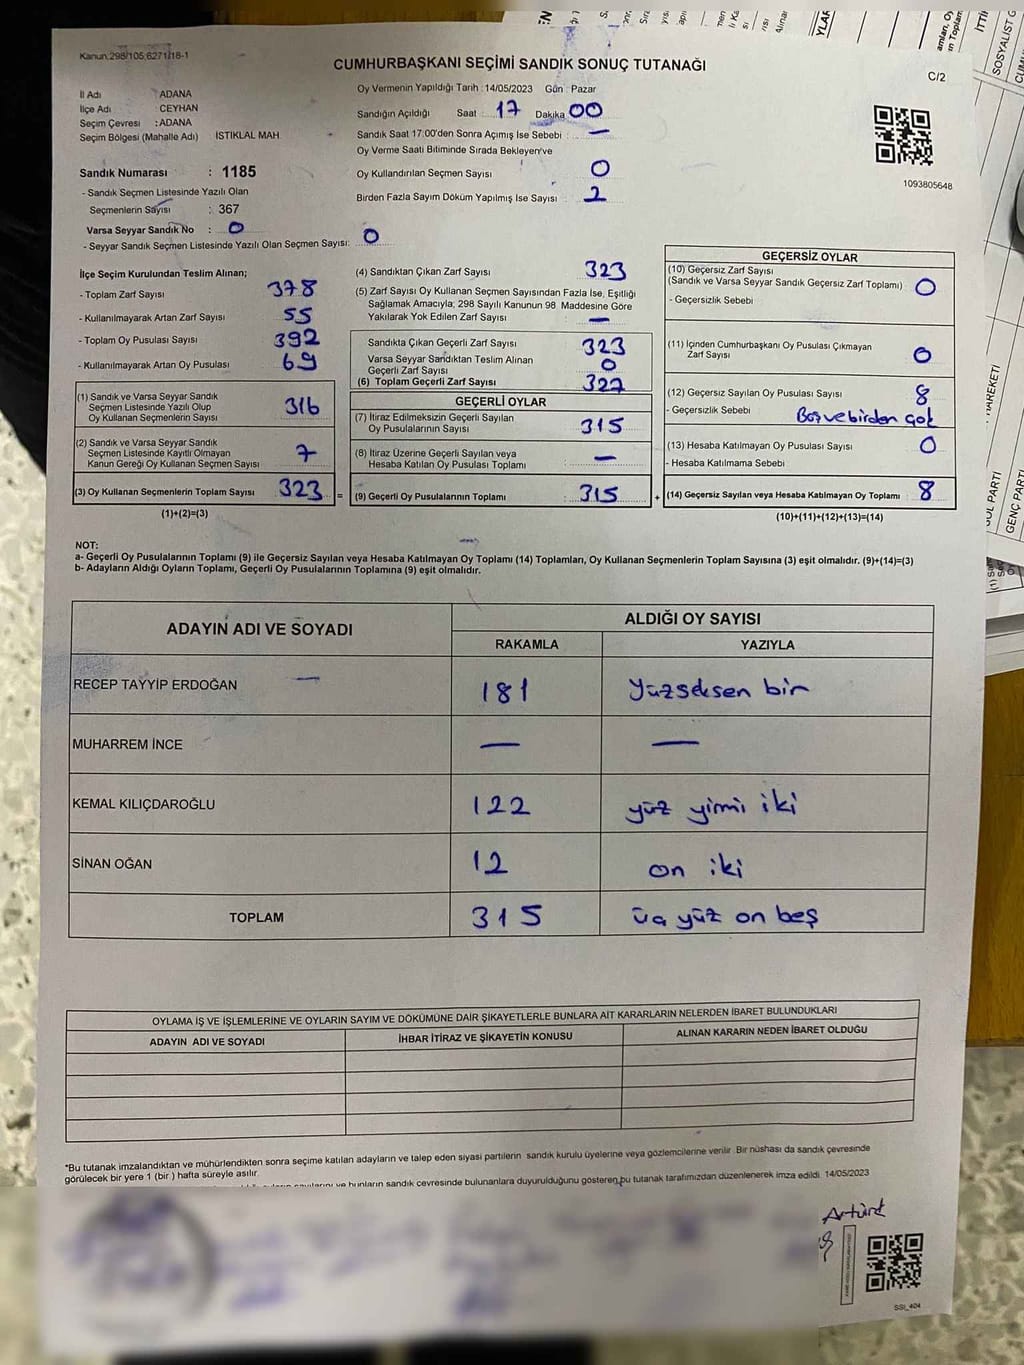 Kanun:298/105;6271/18-1
CUMHURBAŞKANI SEÇİMİ SANDIK SONUÇ TUTANAĞI
C/2
İl Adı : ADANA
İlçe Adı : CEYHAN
Seçim Çevresi : ADANA
Seçim Bölgesi (Mahalle Adı) ISTIKLAL MAH
Sandık Numarası : 1185
- Sandık Seçmen Listesinde Yazılı Olan
Seçmenlerin Sayısı : 367
Varsa Seyyar Sandık No : 0
- Seyyar Sandık Seçmen Listesinde Yazılı Olan Seçmen Sayısı: 0
Oy Vermenin Yapıldığı Tarih : 14/05/2023 Gün : Pazar
Sandığın Açıldığı Saat 17 Dakika 00
Sandık Saat 17:00'den Sonra Açımış İse Sebebi : —
Oy Verme Saati Bitiminde Sırada Bekleyen've
Oy Kullandırılan Seçmen Sayısı 0
Birden Fazla Sayım Döküm Yapılmış İse Sayısı : 2
1093805648
İlçe Seçim Kurulundan Teslim Alınan;
- Toplam Zarf Sayısı 378
- Kullanılmayarak Artan Zarf Sayısı 55
- Toplam Oy Pusulası Sayısı 392
- Kullanılmayarak Artan Oy Pusulası 69
(1) Sandık ve Varsa Seyyar Sandık
Seçmen Listesinde Yazılı Olup
Oy Kullanan Seçmenlerin Sayısı 316
(2) Sandık ve Varsa Seyyar Sandık
Seçmen Listesinde Kayıtlı Olmayan
Kanun Gereği Oy Kullanan Seçmen Sayısı 7
(3) Oy Kullanan Seçmenlerin Toplam Sayısı 323 =
(1)+(2)=(3)
(4) Sandıktan Çıkan Zarf Sayısı 323
(5) Zarf Sayısı Oy Kullanan Seçmen Sayısından Fazla İse, Eşitliği
Sağlamak Amacıyla; 298 Sayılı Kanunun 98. Maddesine Göre
Yakılarak Yok Edilen Zarf Sayısı —
Sandıkta Çıkan Geçerli Zarf Sayısı 323
Varsa Seyyar Sandıktan Teslim Alınan
Geçerli Zarf Sayısı 0
(6) Toplam Geçerli Zarf Sayısı 323
GEÇERLİ OYLAR
(7) İtiraz Edilmeksizin Geçerli Sayılan
Oy Pusulalarının Sayısı 315
(8) İtiraz Üzerine Geçerli Sayılan veya
Hesaba Katılan Oy Pusulası Toplamı —
(9) Geçerli Oy Pusulalarının Toplamı : 315 +
GEÇERSİZ OYLAR
(10) Geçersiz Zarf Sayısı
(Sandık ve Varsa Seyyar Sandık Geçersiz Zarf Toplamı) 0
- Geçersizlik Sebebi
(11) İçinden Cumhurbaşkanı Oy Pusulası Çıkmayan
Zarf Sayısı 0
(12) Geçersiz Sayılan Oy Pusulası Sayısı 8
- Geçersizlik Sebebi Boş ve birden çok
(13) Hesaba Katılmayan Oy Pusulası Sayısı 0
- Hesaba Katılmama Sebebi
(14) Geçersiz Sayılan veya Hesaba Katılmayan Oy Toplamı 8
(10)+(11)+(12)+(13)=(14)
NOT:
a- Geçerli Oy Pusulalarının Toplamı (9) ile Geçersiz Sayılan veya Hesaba Katılmayan Oy Toplamı (14) Toplamları, Oy Kullanan Seçmenlerin Toplam Sayısına (3) eşit olmalıdır. (9)+(14)=(3)
b- Adayların Aldığı Oyların Toplamı, Geçerli Oy Pusulalarının Toplamına (9) eşit olmalıdır.
ADAYIN ADI VE SOYADI
ALDIĞI OY SAYISI
RAKAMLA YAZIYLA
RECEP TAYYİP ERDOĞAN — 181 Yüzseksen bir
MUHARREM İNCE — —
KEMAL KILIÇDAROĞLU 122 yüz yirmi iki
SİNAN OĞAN 12 on iki
TOPLAM 315 üç yüz on beş
OYLAMA İŞ VE İŞLEMLERİNE VE OYLARIN SAYIM VE DÖKÜMÜNE DAİR ŞİKAYETLERLE BUNLARA AİT KARARLARIN NELERDEN İBARET BULUNDUKLARI
ADAYIN ADI VE SOYADI İHBAR İTİRAZ VE ŞİKAYETİN KONUSU ALINAN KARARIN NEDEN İBARET OLDUĞU
*Bu tutanak imzalandıktan ve mühürlendikten sonra seçime katılan adayların ve talep eden siyasi partilerin sandık kurulu üyelerine veya gözlemcilerine verilir. Bir nüshası da sandık çevresinde
görülecek bir yere 1 (bir ) hafta süreyle asılır.
ve bunların sandık çevresinde bulunanlara duyurulduğunu gösteren bu tutanak tarafımızdan düzenlenerek imza edildi. 14/05/2023
SSİ_404
SOSYALIST G
HAREKETİ
GENÇ PARTİ